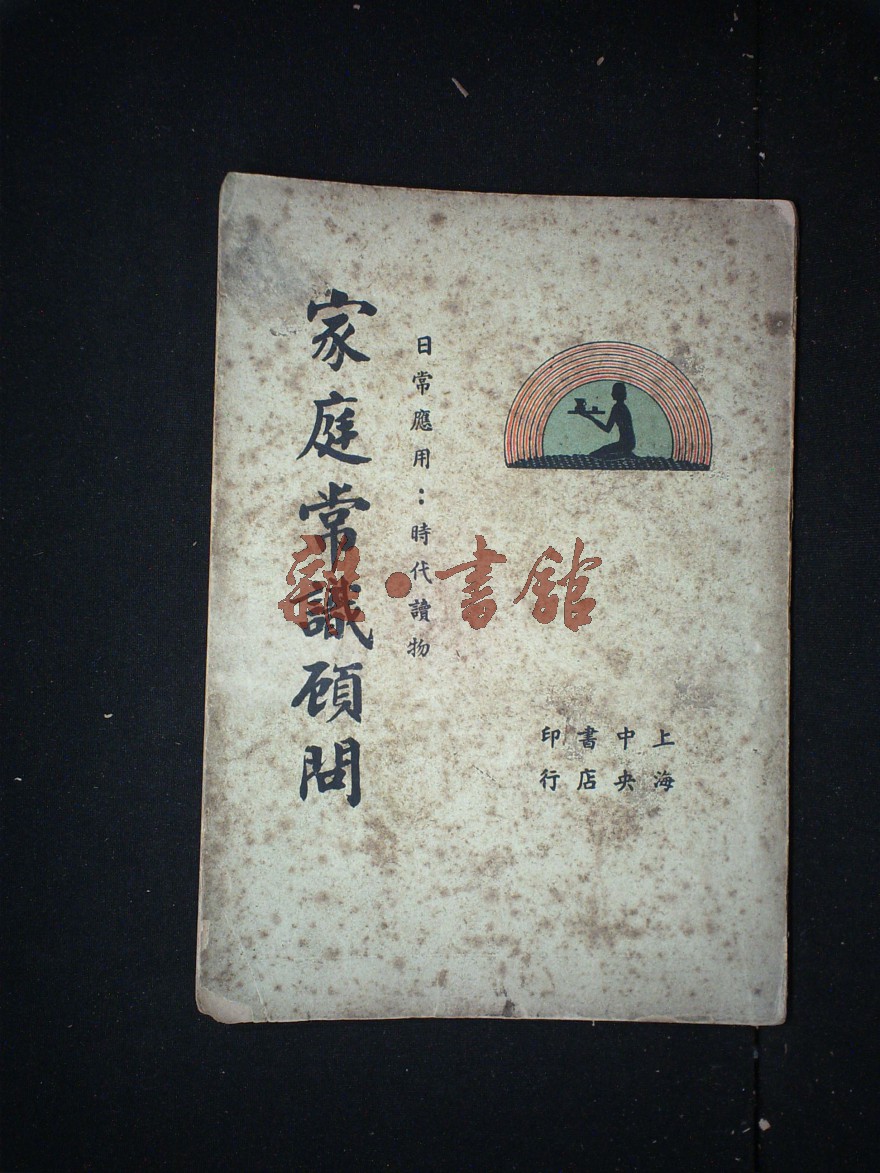 上海
中央
書店
印行
日常應用：時代讀物
家庭常識顧問
雜·書館